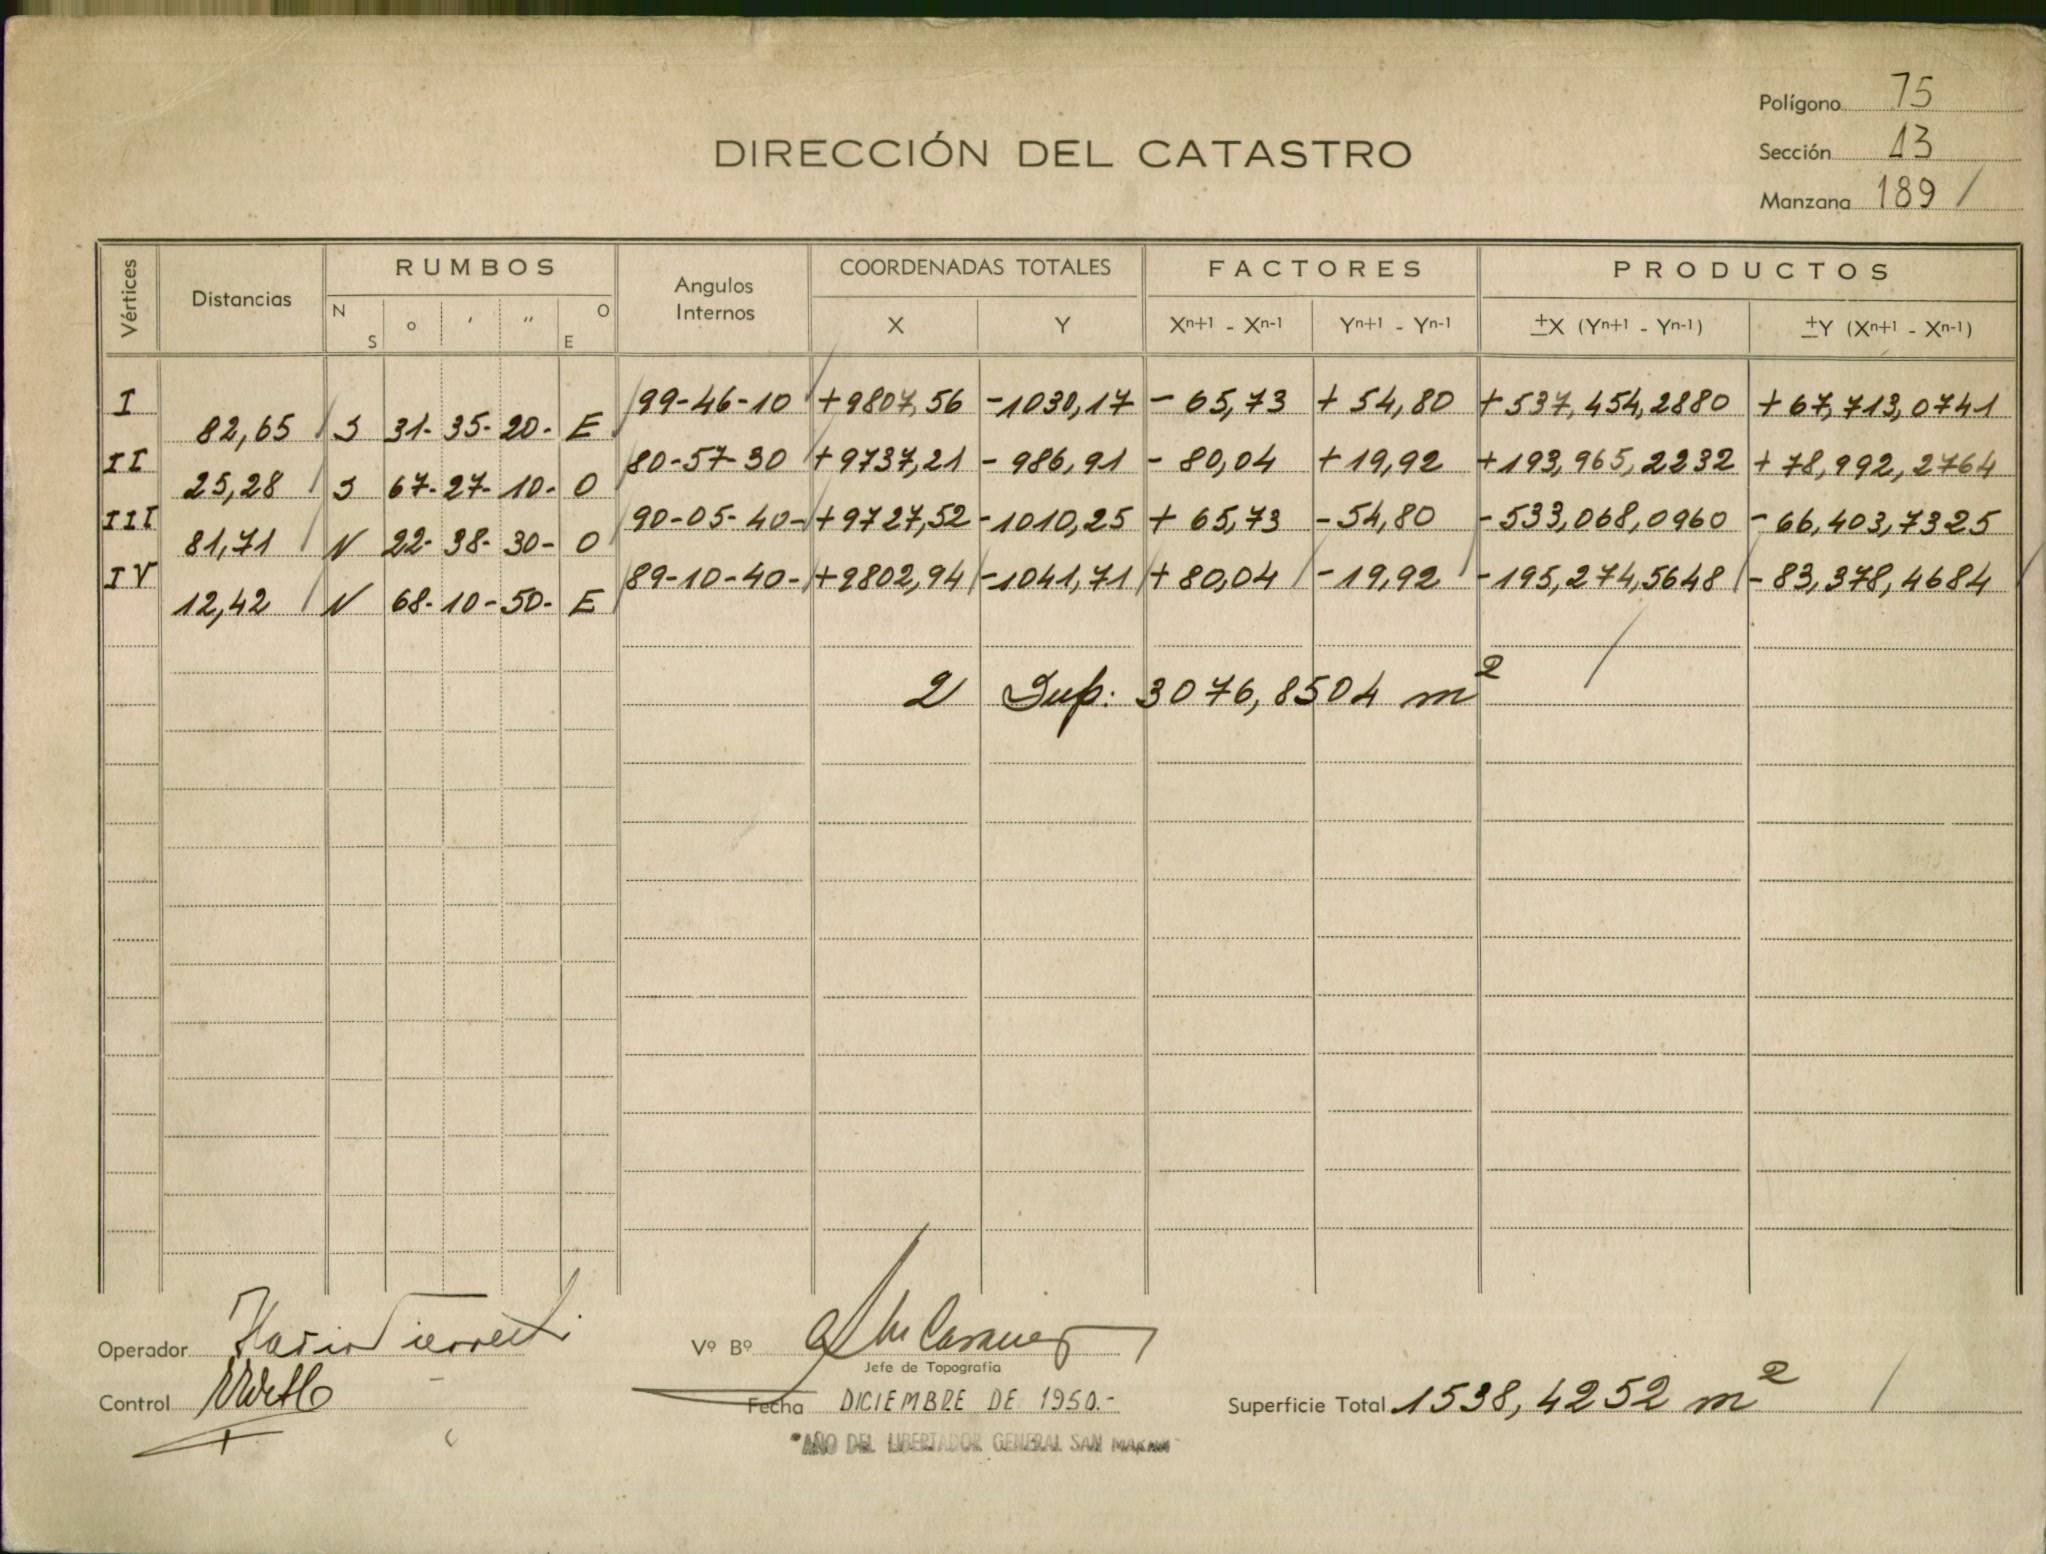 Polígono 75
DIRECCIÓN DEL CATASTRO
Sección 13
Manzana 189 /
Vértices Distancias RUMBOS Angulos Internos COORDENADAS TOTALES FACTORES PRODUCTOS
N S o ' '' O E X Y Xn+1 - Xn-1 Yn+1 - Yn-1 ±X (Yn+1 - Yn-1) ±Y (Xn+1 - Xn-1)
I 99-46-10 +9807,56 -1030,17 - 65,73 + 54,80 +537,454,2880 +67,713,0741
82,65 S 31- 35- 20- E
II 80-57-30 +9737,21 - 986,91 - 80,04 +19,92 +193,965,2232 +78,992,2764
25,28 S 67- 27- 10- O
III 90-05-40- +9727,52 -1010,25 + 65,73 -54,80 -533,068,0960 -66,403,7325
81,71 N 22- 38- 30- O
IV 89-10-40- +9802,94 -1041,71 +80,04 -19,92 -195,274,5648 -83,378,4684
12,42 N 68- 10- 50- E
2 Sup: 3076,8504 m2
Operador
Vº Bº
Jefe de Topografia
Control
Fecha DICIEMBRE DE 1950.-
Superficie Total 1538,4252 m2 /
"AÑO DEL LIBERTADOR GENERAL SAN